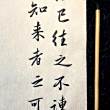 已往之不諫
知来者之可